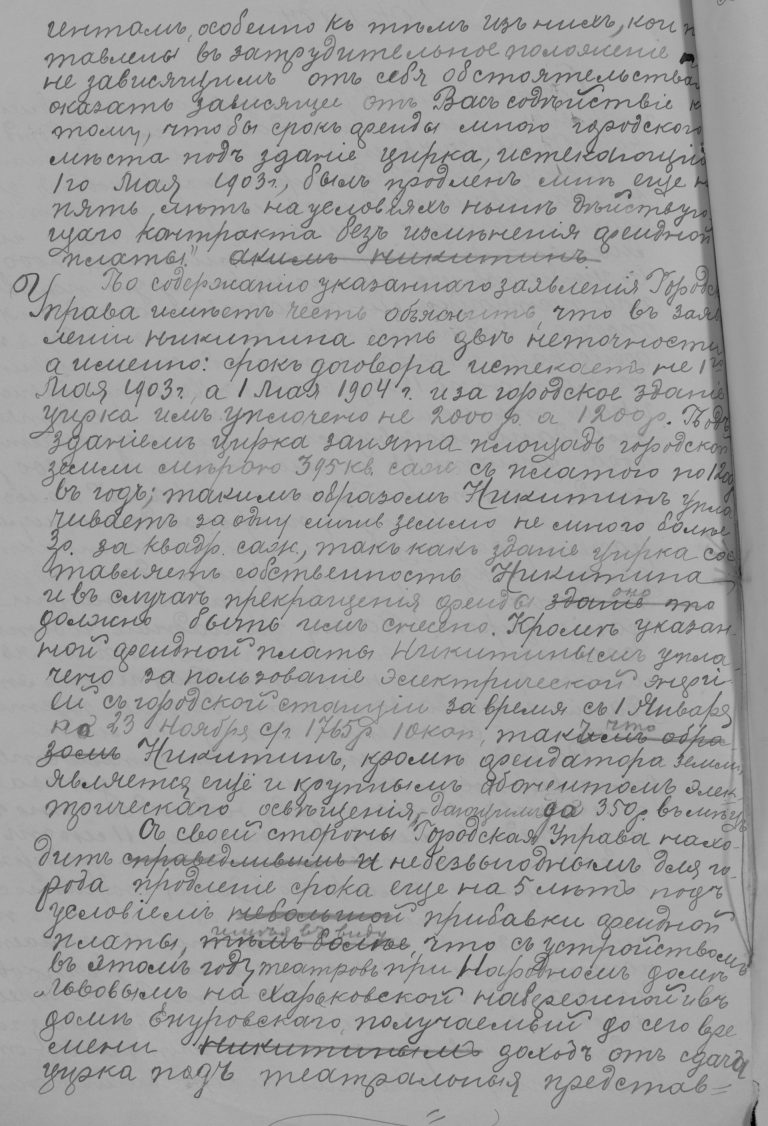 гентамъ, особенно къ тѣмъ изъ нихъ, кои п
тавлены въ затрудительное положеніе
не зависящимъ отъ себя обстоятельства
оказать зависящее отъ Васъ содѣйствіе к
тому, чтобы срокъ аренды много городского
мѣста подъ зданіе цирка, истекающій
1го Мая 1903г., былъ продленъ мнѣ еще н
пять лѣтъ на условіяхъ нынѣ дѣйствую
щаго контракта безъ измѣненія арендной
платы" акимъ никитинъ
По содержанію указаннаго заявленія Городск
Управа имѣетъ честь объяснить, что въ заяв
леніи никитина есть двѣ неточности
а именно: срокъ договора истекаетъ не 1го
Мая 1903г, а 1 Мая 1904 г. и за городское зданіе
цирка имъ уплочено не 2000 р. а 1200 р. Подъ
зданіемъ цирка занята площадь городской
земли мѣрою 395 кв. саж съ платою по 1200
въ годъ; такимъ образомъ Никитинъ упла
чиваетъ за одну лишь землю не много болѣе
3р. за квадр. саж., такъ какъ зданіе цирка сос
тавляетъ собственность Никитина
и въ случаѣ прекращенія аренды зданіе оно это
должно быть имъ снесено. Кромѣ указан-
ной арендной платы Никитинымъ упла-
чено за пользованіе электрической энергі-
ей съ городской станціи за время съ 1 Января
на 23 Ноября с/г 1765р 10 коп, такимъ что обра-
зомъ Никитинъ, кромѣ арендатора земли,
является ещё и крупнымъ абонентомъ элек-
трическаго освѣщенія, до 350 р. въ мѣсяцъ
Съ своей стороны Городская Управа нахо-
дитъ справедливымъ и небезвыгоднымъ для го-
рода продленіе срока еще на 5 лѣтъ подъ
условіемъ небольшой прибавки арендной
платы, тѣмъ болѣе имѣя въ виду, что съ устройствомъ
въ этомъ году театровъ при Народномъ домѣ
Львовымъ на Харьковской набережной и въ
домѣ Екуровскаго, получаемый до сего вре
мени никитинымъ доходъ отъ сдачи
цирка подъ театральныя представ=